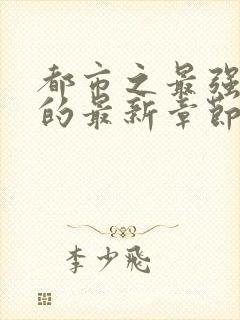 都市之最强
的最新章節
李少飛